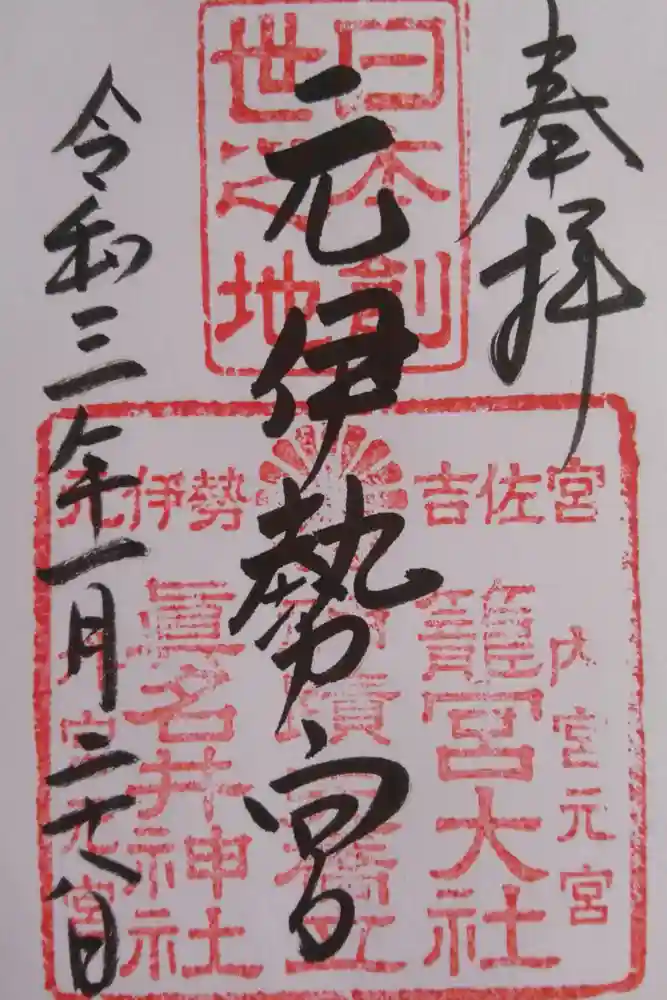 奉拝
日本創
世之地
元伊勢宮
元伊勢 吉佐宮
内宮元宮
籠宮大社
眞名井神社
元宮
令和三年一月二十八日